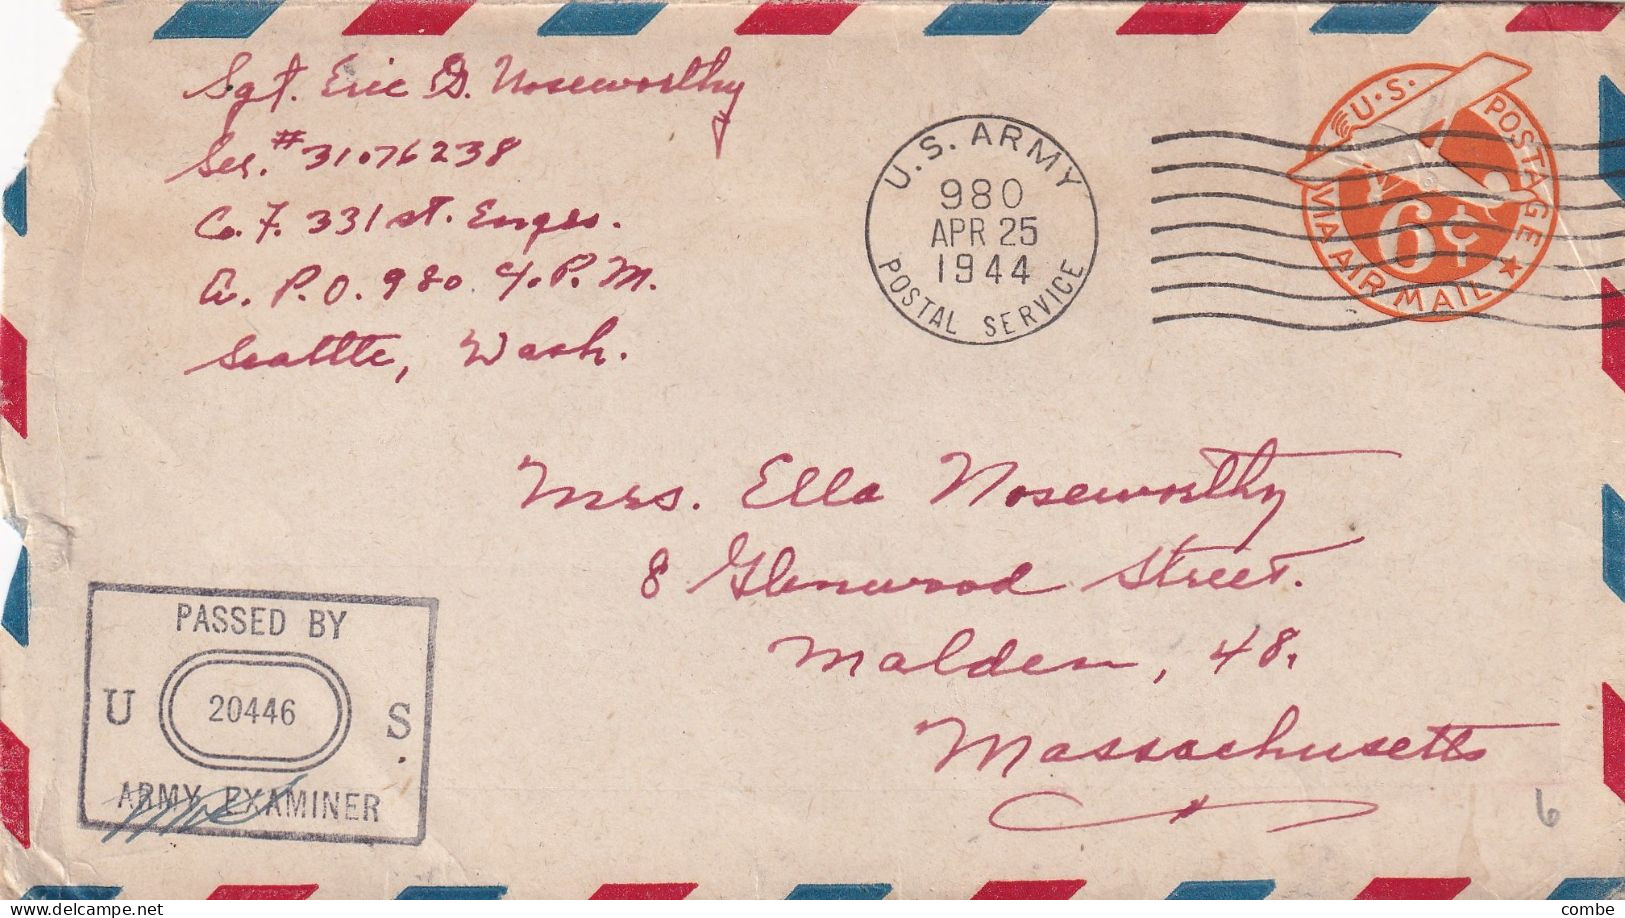 Sgt. Eric G. Noseworthy
Ser. # 31076238
Co. F. 331st. Engrs.
A. P. O. 980 c/o. P. M.
Seattle, Wash.
U.S. ARMY
980
APR 25
1944
POSTAL SERVICE
U.S. POSTAGE
6¢
VIA AIR MAIL
Mrs. Ella Noseworthy
8 Glenwood Street.
Malden, 48,
Massachusetts
PASSED BY
U 20446 S.
ARMY EXAMINER
6
delcampe.net
combe